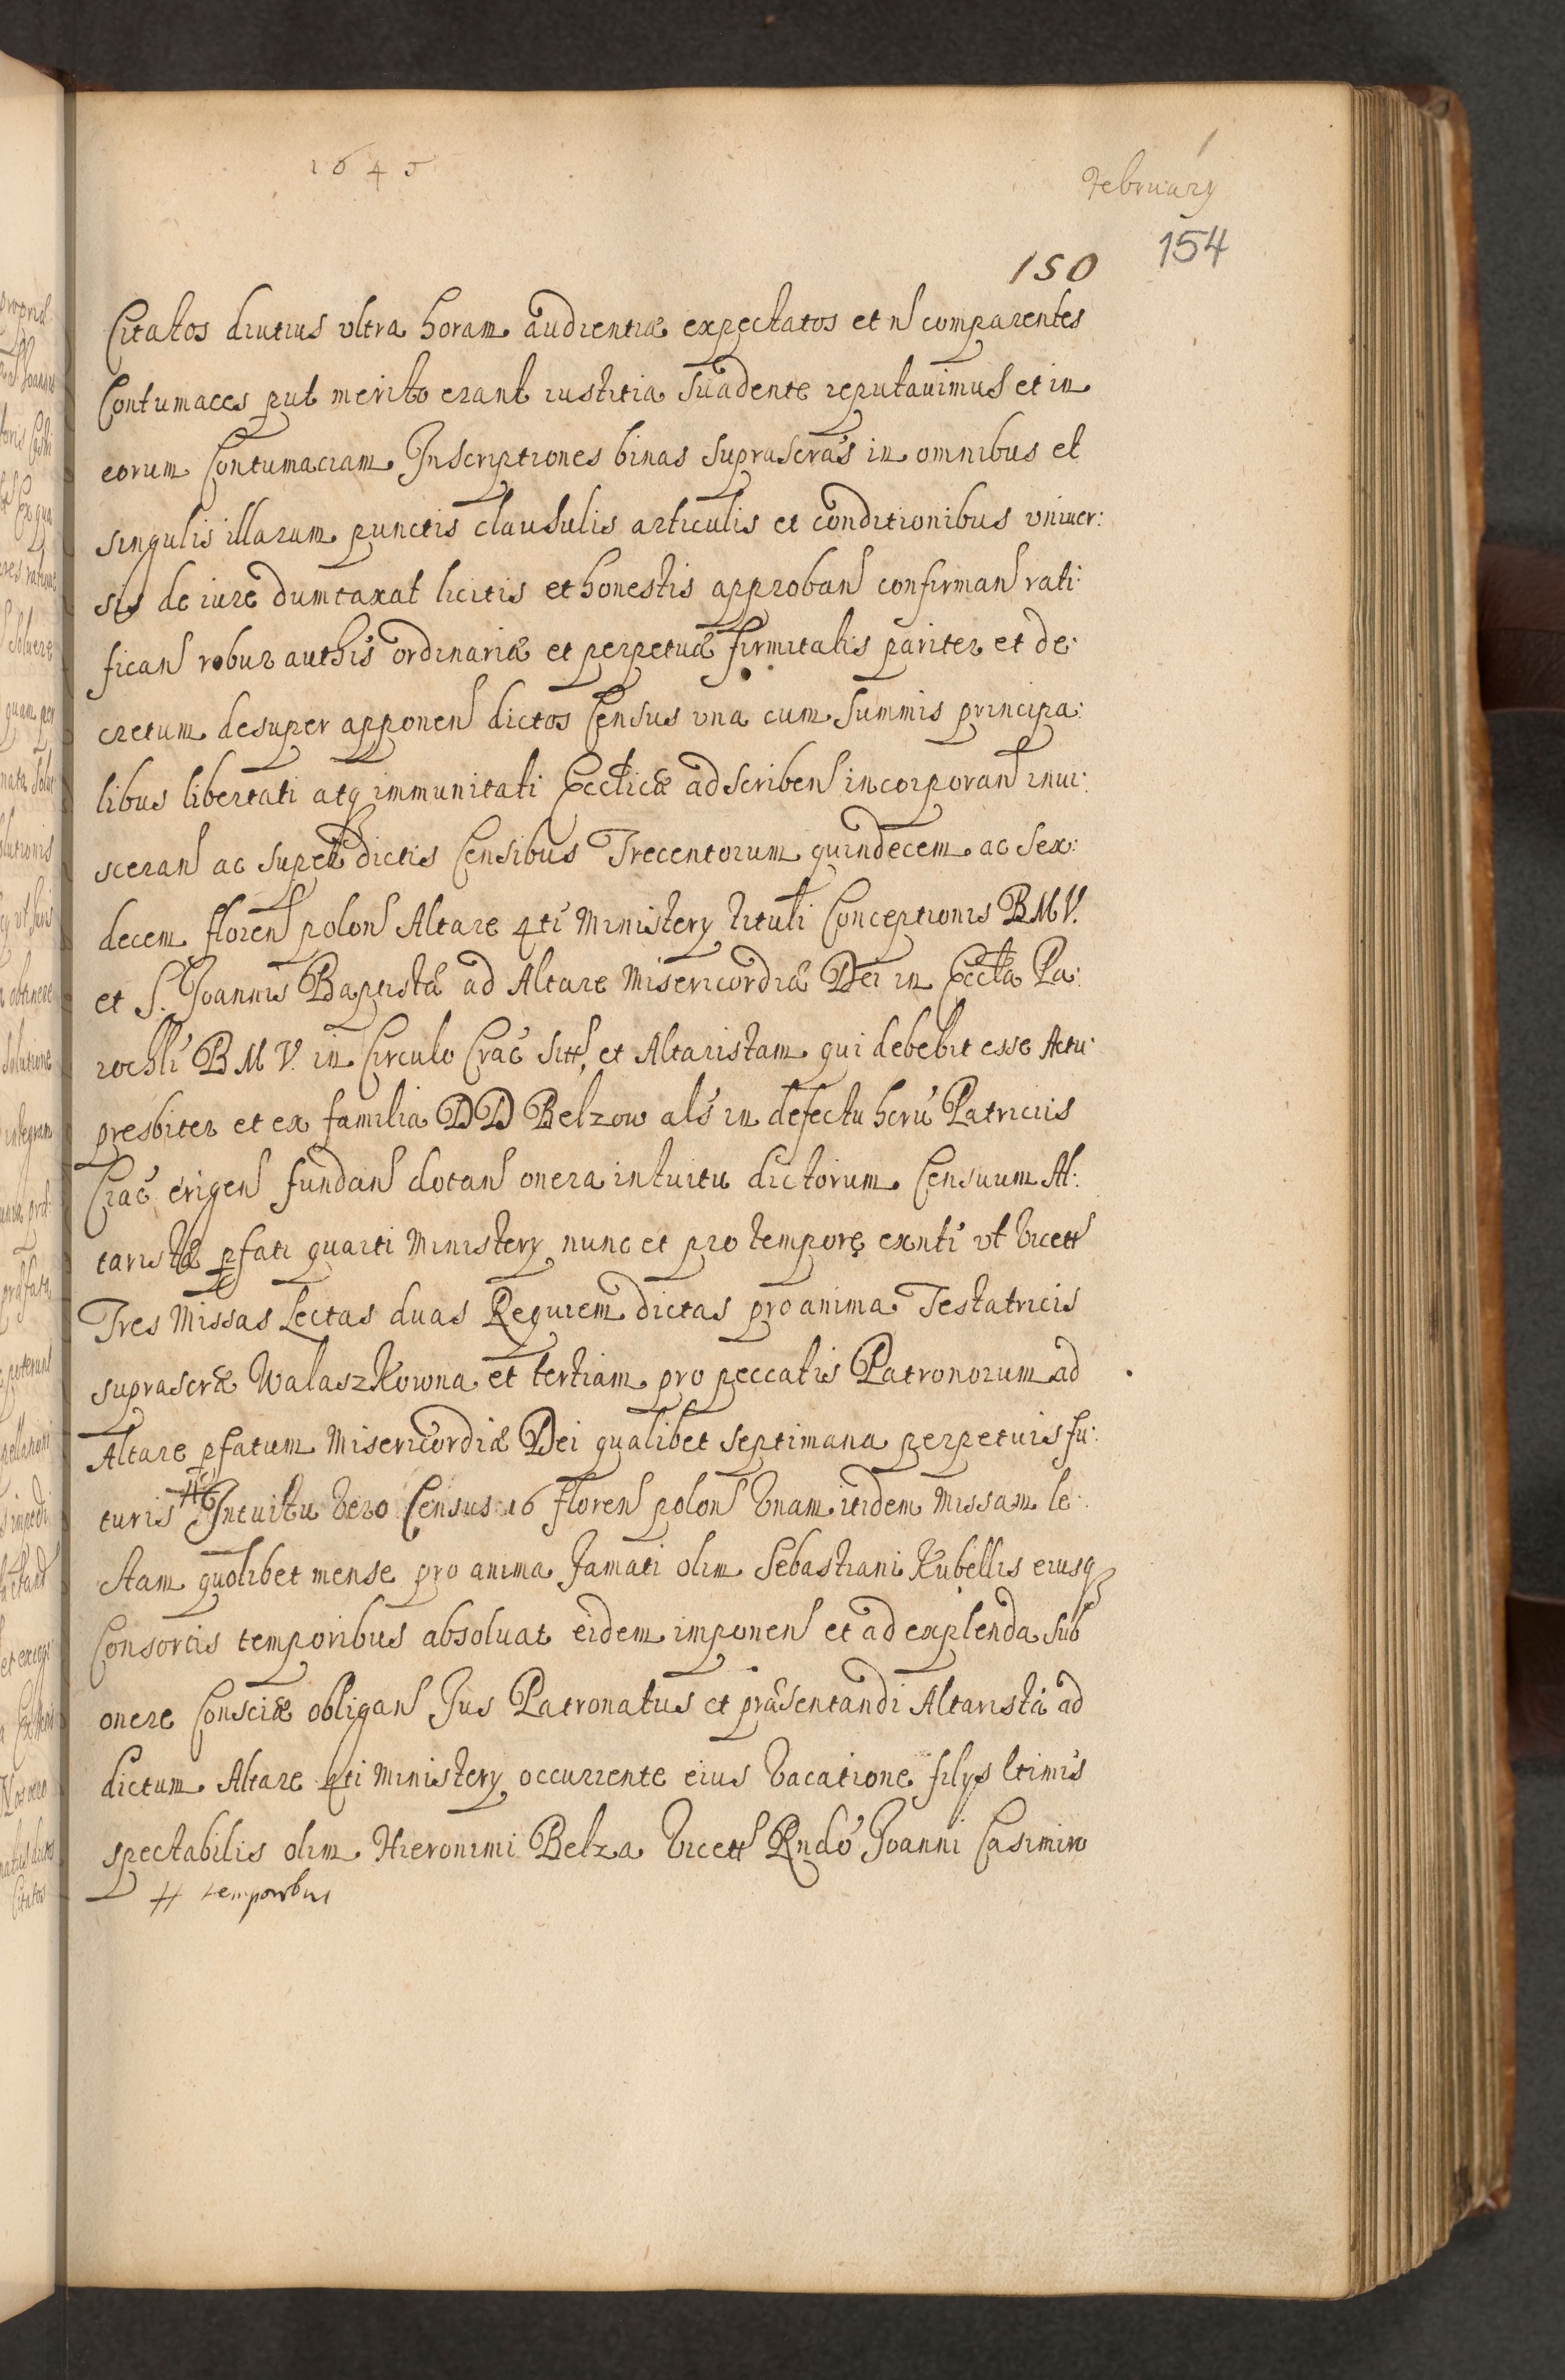 1645
February
150 154
Citatos diutius ultra horam audientiæ expectatos et ñ comparentes
Contumaces put merito erant iustitia suadente reputauimus et in
eorum Contumaciam Inscriptiones binas suprascràs in omnibus et
singulis illarum punctis clausulis articulis et conditionibus vniuer:
sis de iure dumtaxat licitis et honestis approban confirman rati:
fican robur authis ordinariæ et perpetuæ firmitatis pariter et de:
cretum desuper apponen dictos Census vna cum summis principa:
libus libertati atq immunitati Ecclicæ adscriben incorporan inui:
sceran ac super dictis Censibus Trecentorum quindecem ac sex:
decem floren polon Altare 4ti Ministery tituli Conceptionis B M V.
et S. Joannis Baptistæ ad Altare Misericordiæ Dei in Eccla Pa:
rochli B M V. in Circulo Crac sitt, et Altaristam qui debebit esse Actu
presbiter et ex familia D D Belzow als in defectu horu Patriciis
Crac erigen fundan dotan onera intuitu dictorum Censuum Al:
taristæ pfati quarti Ministery nunc et pro tempore exnti vt vicett
Tres Missas Lectas duas Requiem dictas pro anima Testatricis
suprascræ Walaszkowna et tertiam pro peccatis Patronorum ad
Altare pfatum Misericordiæ Dei qualibet septimana perpetuis fu:
turis # Intuitu vero Census 16 floren polon vnam itidem Missam le:
ctam quolibet mense pro anima famati olim Sebastiani Kubellis eiusq
Consortis temporibus absoluat eidem imponen et ad explenda sub
onere Consciæ obligan Jus Patronatus et præsentandi Altaristà ad
dictum Altare 4ti Ministery occurrente eius vacatione filys ltimis
spectabilis olim Hieronimi Belza vicett Rndo Joanni Casimiro
# temporibus